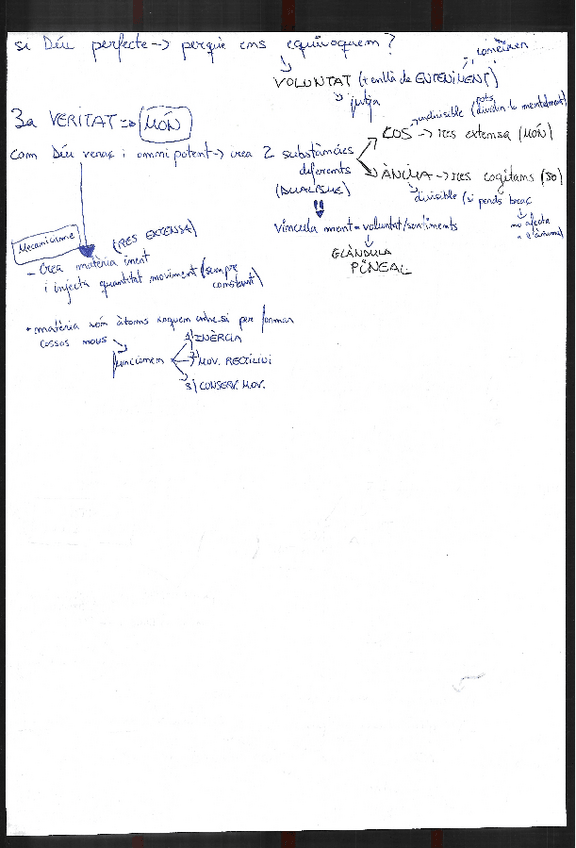 si Déu perfecte -> perquè ens equivoquem?
coneixen
VOLUNTAT (+ enllà de ENTENIMENT)
jutja
3a VERITAT => MÓN
indivisible (pots dividir-lo mentalment)
COS -> res extensa (MÓN)
Com Déu veraç i omnipotent -> crea 2 substàncies diferents (DUALISME)
ÀNIMA -> res cogitans (JO)
divisible (si perds braç
no afecta a l'ànima)
vincula ment = voluntat/sentiments
GLÀNDULA PINEAL
Mecanicisme
(RES EXTENSA)
- Crea matèria inert
i injecta quantitat moviment (sempre constant)
+ matèria són àtoms xoquen entre si per formar
cossos nous
funcionen
1) INÈRCIA
2) MOV. RECTILINI
3) CONSERV. MOV.